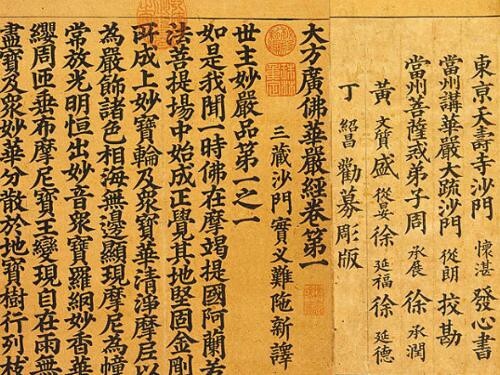 東京天壽寺沙門 懷湛 發心書
當州講華嚴大疏沙門 從朗 挍勘
當州菩薩戒弟子周 承展 徐 承潤
黃 文質 盛 從晏 徐 延福 徐 延德
丁 紹昌 勸募彫版
大方廣佛華嚴經卷第一
三藏沙門實叉難陁新譯
世主妙嚴品第一之一
如是我聞一時佛在摩竭提國阿蘭若
法菩提場中始成正覺其地堅固金剛
所成上妙寶輪及眾寶華清淨摩尼以
為嚴飾諸色相海無邊顯現摩尼為幢
常放光明恒出妙音眾寶羅網妙香華
纓周匝垂布摩尼寶王變現自在雨無
盡寶及眾妙華分散於地寶樹行列枝